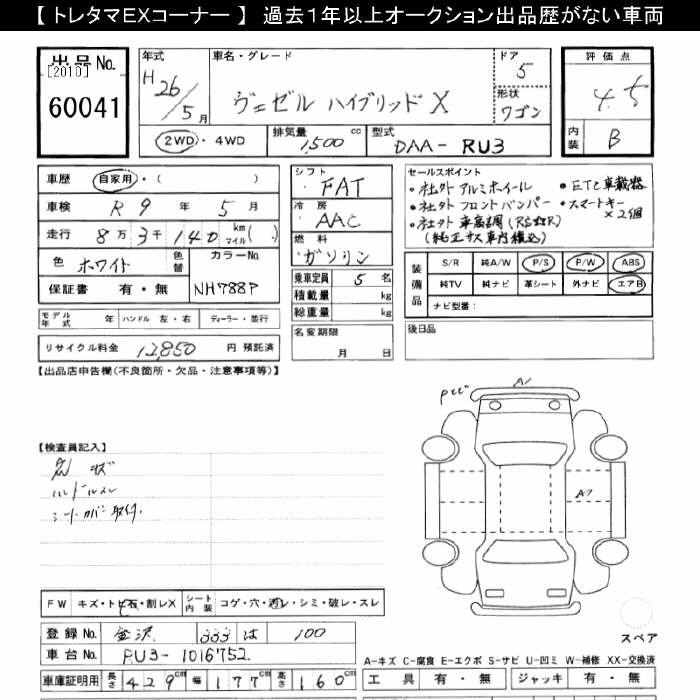 【 トレタマEXコーナー 】 過去１年以上オークション出品歴がない車両
出品No.
[2010]
60041
年式
H 26/5月
車名・グレード
ヴェゼル ハイブリッド X
ドア
5
形状
ワゴン
評価点
4.5
内装
B
2WD・4WD
排気量
1,500 cc
型式
DAA- RU3
車歴 自家用・( )
車検 R 9 年 5 月
走行 8万 3千 140 km マイル( )
色 ホワイト 色替
カラーNo. NH788P
保証書 有・無
シフト
FAT
冷房
AAC
燃料
ガソリン
乗車定員 5 名
積載量 kg
総重量 kg
名変期限
月 日
セールスポイント
・社外 アルミホイール ・ETC車載器
・社外 フロントバンパー ・スマートキー×2個
・社外 車高調 (RS★R)
(純正サス車内積込)
装備品
S/R 純A/W P/S P/W ABS
純TV 純ナビ 革シート 外ナビ エアB
ナビ型番：
後日品
モデル年式 年 ハンドル 左・右 ディーラー・並行
リサイクル料金 12,850 円 預託済
【出品店申告欄(不良箇所・欠品・注意事項等)】
【検査員記入】
ハンドルスレ
シートカバー取付
A1
A1
FW キズ・トビ石・割レX
シート内装 コゲ・穴・汚レ・シミ・破レ・スレ
登録No. 金沢 333 は 100
車台No. RU3-1016752
車庫証明用 長さ 429cm 幅 177cm 高さ 160cm
スペア
A-キズ C-腐食 E-エクボ S-サビ U-凹ミ W-補修 XX-交換済
工具 有・無 ジャッキ 有・無